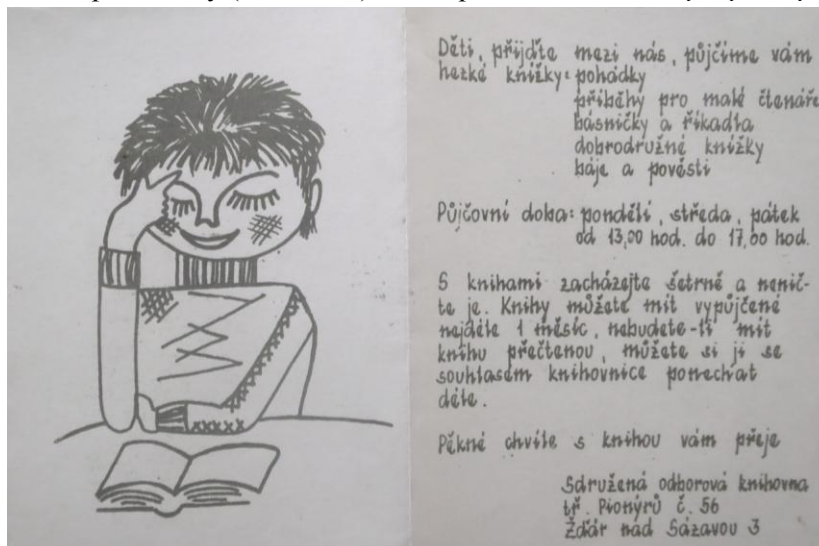 Děti, přijďte mezi nás, půjčíme vám
hezké knížky: pohádky
příběhy pro malé čtenáře
básničky a říkadla
dobrodružné knížky
báje a pověsti
Půjčovní doba: pondělí, středa, pátek
od 13,00 hod. do 17,00 hod.
S knihami zacházejte šetrně a nenič-
te je. Knihy můžete mít vypůjčené
nejdéle 1 měsíc, nebudete-li mít
knihu přečtenou, můžete si ji se
souhlasem knihovnice ponechat
déle.
Pěkné chvíle s knihou vám přeje
Sdružená odborová knihovna
tř. Pionýrů č. 56
Žďár nad Sázavou 3